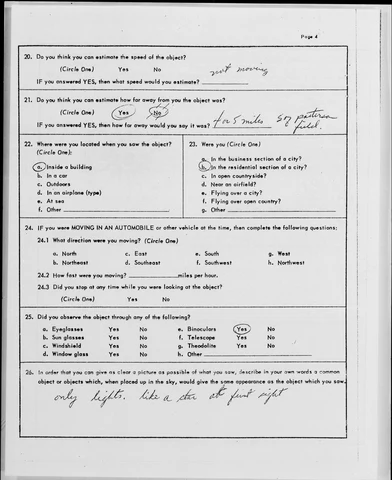 Page 4
20. Do you think you can estimate the speed of the object?
(Circle One) Yes No not moving
IF you answered YES, then what speed would you estimate?
21. Do you think you can estimate how far away from you the object was?
(Circle One) Yes No
IF you answered YES, then how far away would you say it was? 4 or 5 miles
22. Where were you located when you saw the object?
(Circle One):
a. Inside a building
b. In a car
c. Outdoors
d. In an airplane (type)
e. At sea
f. Other
23. Were you (Circle One)
a. In the business section of a city?
b. In the residential section of a city?
c. In open countryside?
d. Near an airfield?
e. Flying over a city?
f. Flying over open country?
g. Other
24. IF you were MOVING IN AN AUTOMOBILE or other vehicle at the time, then complete the following questions:
24.1 What direction were you moving? (Circle One)
a. North c. East e. South g. West
b. Northeast d. Southeast f. Southwest h. Northwest
24.2 How fast were you moving? miles per hour.
24.3 Did you stop at any time while you were looking at the object?
(Circle One) Yes No
25. Did you observe the object through any of the following?
a. Eyeglasses Yes No e. Binoculars Yes No
b. Sun glasses Yes No f. Telescope Yes No
c. Windshield Yes No g. Theodolite Yes No
d. Window glass Yes No h. Other
26. In order that you can give as clear a picture as possible of what you saw, describe in your own words a common
object or objects which, when placed up in the sky, would give the same appearance as the object which you saw.
only lights. like a star at first sight